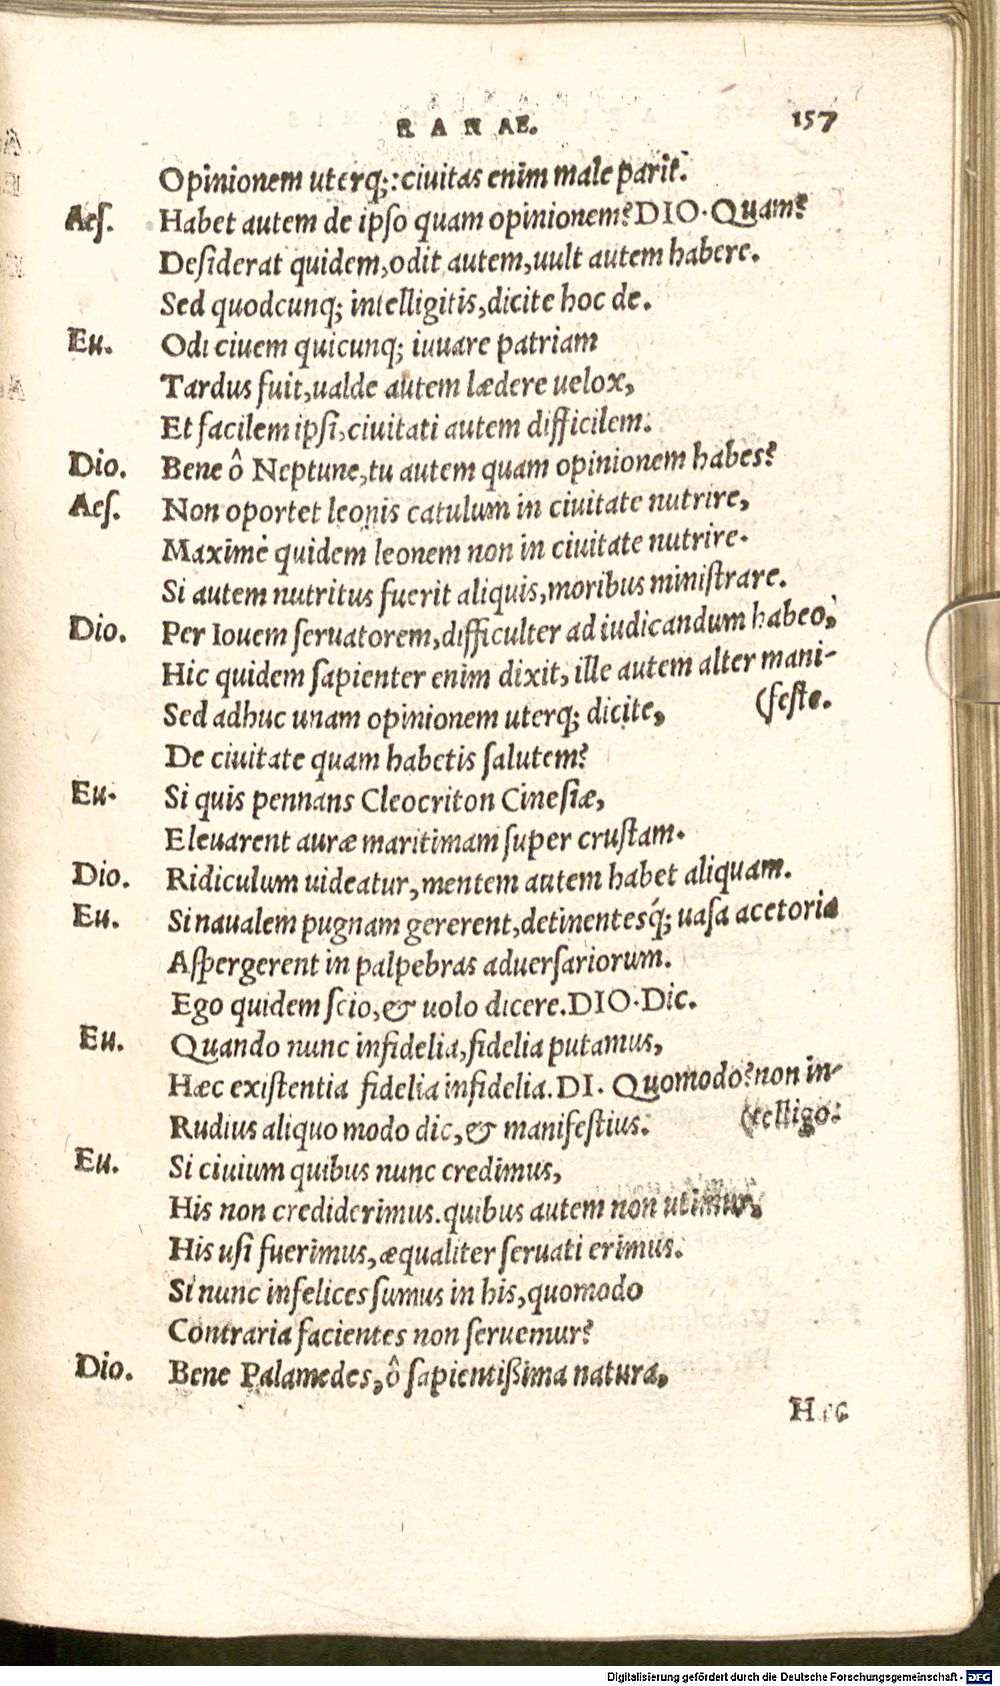 RANAE. 157
Opinionem uterq;: ciuitas enim male parit.
Aes. Habet autem de ipso quam opinionem? DIO. Quam?
Desiderat quidem, odit autem, uult autem habere.
Sed quodcunq; intelligitis, dicite hoc de.
Eu. Odi ciuem quicunq; iuuare patriam
Tardus fuit, ualde autem lædere uelox,
Et facilem ipsi, ciuitati autem difficilem.
Dio. Bene ô Neptune, tu autem quam opinionem habes?
Aes. Non oportet leonis catulum in ciuitate nutrire,
Maxime quidem leonem non in ciuitate nutrire.
Si autem nutritus fuerit aliquis, moribus ministrare.
Dio. Per Iouem seruatorem, difficulter ad iudicandum habeo,
Hic quidem sapienter enim dixit, ille autem alter mani-
Sed adhuc unam opinionem uterq; dicite, (feste.
De ciuitate quam habetis salutem?
Eu. Si quis pennans Cleocriton Cinesiæ,
Eleuarent auræ maritimam super crustam.
Dio. Ridiculum uideatur, mentem autem habet aliquam.
Eu. Si naualem pugnam gererent, detinentesq́; uasa acetoria
Aspergerent in palpebras aduersariorum.
Ego quidem scio, & uolo dicere. DIO. Dic.
Eu. Quando nunc infidelia, fidelia putamus,
Hæc existentia fidelia infidelia. DI. Quomodo? non in-
Rudius aliquo modo dic, & manifestius. (telligo:
Eu. Si ciuium quibus nunc credimus,
His non crediderimus. quibus autem non utimur,
His usi fuerimus, æqualiter seruati erimus.
Si nunc infelices sumus in his, quomodo
Contraria facientes non seruemur?
Dio. Bene Palamedes, ô sapientißima natura,
Hęc
Digitalisierung gefördert durch die Deutsche Forschungsgemeinschaft - DFG